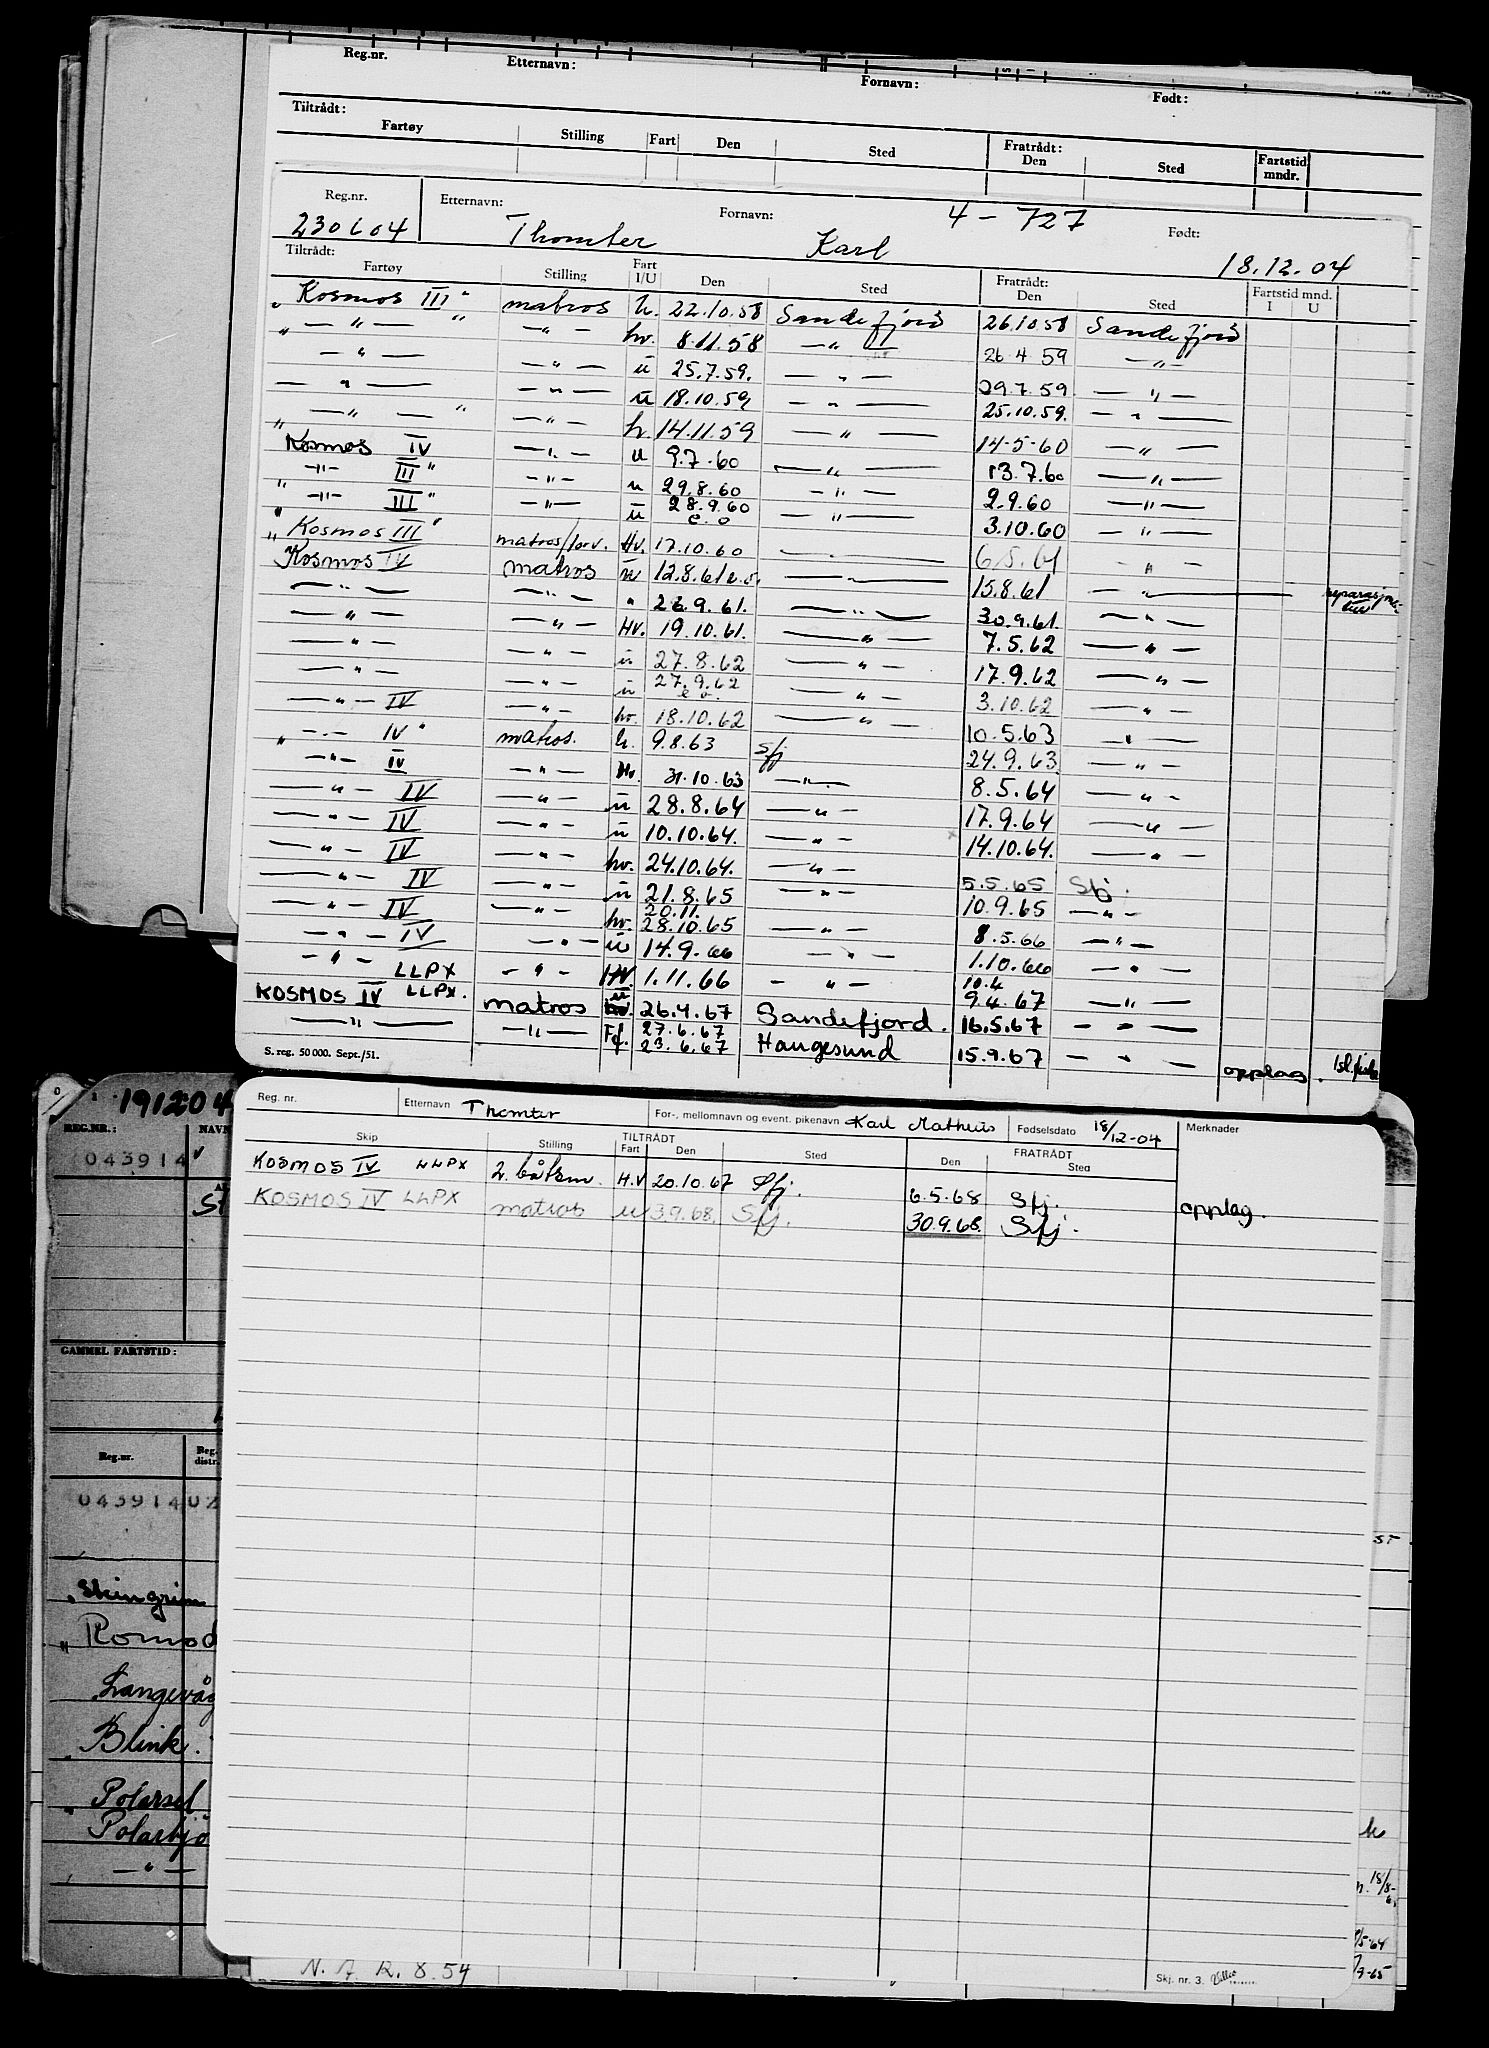 Reg.nr. Etternavn: Fornavn: Født:
Tiltrådt: Fratrådt:
Fartøy Stilling Fart Den Sted Den Sted Fartstid mndr.
Reg.nr. Etternavn: Fornavn: 4-727 Født:
230604 Thomter Karl 18.12.04
Tiltrådt: Fratrådt:
Fartøy Stilling Fart I/U Den Sted Den Sted Fartstid mnd. I U
„Kosmos III" matros h. 22.10.58 Sandefjord 26.10.58 Sandefjord
„ — " — " — " — hv. 8.11.58 — " — 26 4 59 — " —
— " — — " — u 25.7.59. — " — 29.7.59 — " —
— " — — " — u 18.10.59 — " — 25.10.59. — " —
„ — " — " — " — h. 14.11.59 — " — 14-5-60 — " —
Kosmos IV — " — u 9.7.60 — " — 13.7.60 — " —
„ — " — III" — " — u 29.8.60 — " — 2.9.60 — " —
„ — " — III" — " — u 28.9.60 e.o — " — 3.10.60 — " —
„Kosmos III" matros/tørv. Hv. 17.10.60 — " — 6.5.61 — " —
Kosmos IV matros u 12.8.61 e.o. — " — 15.8.61 — " — reparasjons-
— " — — " — " 26.9.61. — " — 30.9.61. — " —
— " — — " — Hv. 19.10.61. — " — 7.5.62 — " —
— " — — " — u 27.8.62 — " — 17.9.62 — " —
— " — — " — u 27.9.62 e o. — " — 3.10.62 — " —
— " — IV — " — hv. 18.10.62 — " — 10.5.63 — " —
„ — " — IV" matros. h. 9.8.63 Sfj 24.9.63. — " —
— " — IV — " — Hv. 31.10.63 — " — 8.5.64 — " —
— " — IV — " — u 28.8.64 — " — 17.9.64 — " —
— " — IV — " — u 10.10.64. — " — 14.10.64. — " —
— " — IV — " — hv. 24.10.64. — " — 5.5.65 Sfj.
— " — IV — " — u 21.8.65 — " — 10.9.65 — " —
— " — IV — " — hv. 20.11. 28.10.65 — " — 8.5.66 — " —
— " — IV — " — u 14.9.66 — " — 1.10.66 — " —
— " — LLPX — " — HV. 1.11.66 — " — 10.4 9.4.67 — " —
KOSMOS IV LLPX. matros u 26.4.67 Sandefjord. 16.5.67 — " —
— " — — " — Ff. 27.6.67 23.6.67 Haugesund 15.9.67 — " — opplag.
S. reg. 50000. Sept./51.
191204
REG.NR.: NAVN
043914
GAMMEL FARTSTID:
Reg.nr. Reg. distr.
043914 02
„Skingrim
„Romsd
Langevåg
„Blink.
„Polarsel
Polarbjø
„ — " —
Reg. nr. Etternavn Thomter For-, mellomnavn og event. pikenavn Karl Matheus Fødselsdato 18/12-04 Merknader
TILTRÅDT FRATRÅDT
Skip Stilling Fart Den Sted Den Sted
KOSMOS IV LLPX 2. båtsm. H.V 20.10.67 Sfj. 6.5.68 Sfj. opplag.
KOSMOS IV LLPX matros u 3.9.68. Sfj. 30.9.68. Sfj.
ST
18/8-
/5-64
/9-65
N. A R. 8.54
Skj. nr. 3.